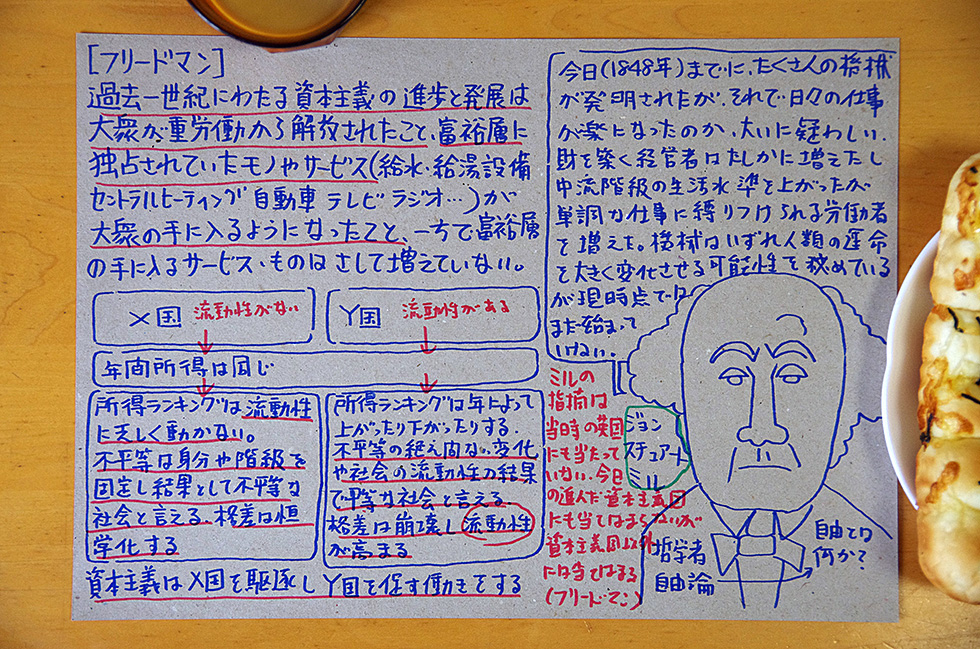 [フリードマン]
過去一世紀にわたる資本主義の進歩と発展は
大衆が重労働から解放されたこと、富裕層に
独占されていたモノやサービス(給水・給湯設備
セントラルヒーティング 自動車 テレビ ラジオ…)が
大衆の手に入るようになったこと、一方で富裕層
の手に入るサービス・ものはさして増えていない。
X国 流動性がない
Y国 流動性がある
年間所得は同じ
所得ランキングは流動性
に乏しく動かない。
不平等は身分や階級を
固定し結果として不平等な
社会と言える、格差は恒
常化する
所得ランキングは年によって
上がったり下がったりする、
不平等の絶え間ない変化
や社会の流動性の結果
で平等な社会と言える、
格差は崩壊し流動性
が高まる
資本主義はX国を駆逐しY国を促す働きをする
今日(1848年)までに、たくさんの機械
が発明されたが、それで日々の仕事
が楽になったのか、大いに疑わしい、
財を築く経営者はたしかに増えたし
中流階級の生活水準も上がったが
単調な仕事に縛りつけられる労働者
も増えた。機械はいずれ人類の運命
を大きく変化させる可能性を秘めている
が現時点では
まだ始まって
いけない。
ミルの
指摘は
当時の英国
にも当たって
いない、今日
の進んだ資本主義国
にも当てはまらないが
資本主義国以外
には当てはまる
(フリードマン)
ジョン
スチュアート
ミル
哲学者
自由論
自由とは
何か?